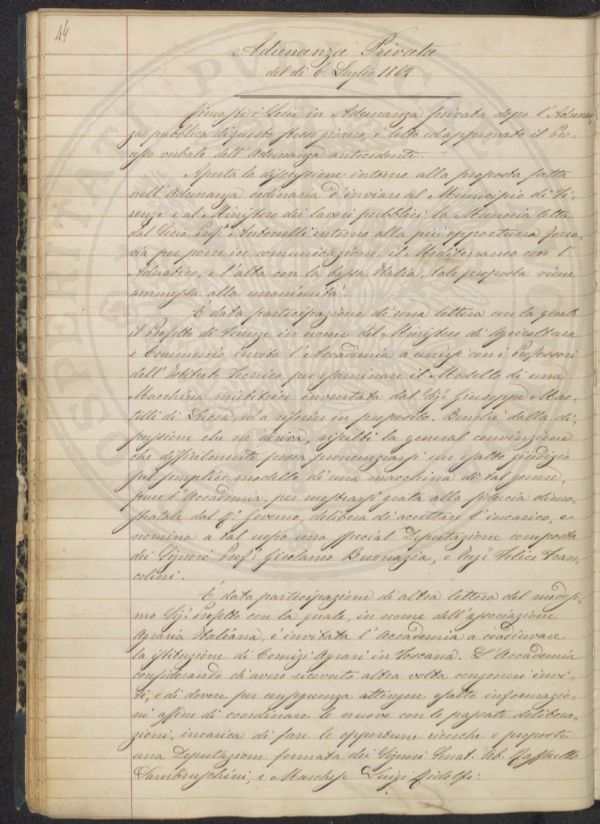 44
Adunanza Privata
del dì 6. Luglio 1862
Rimasti i Socii in Adunanza privata dopo l'Adunan-
za pubblica di questo stesso giorno, è letto ed approvato il Pro-
cesso verbale dell'Adunanza antecedente.
Aperta la discussione intorno alla proposta fatta
nell'Adunanza ordinaria d'inviare al Municipio di Fi-
renze e al Ministero dei lavori pubblici la Memoria letta
dal Socio Prof.e Antonelli intorno alla più opportuna ferro-
via per porre in comunicazione il Mediterraneo con l'
Adriatico, e l'alta con la bassa Italia, tale proposta viene
ammessa alla unanimità.
È data partecipazione di una lettera con la quale
il Prefetto di Firenze in nome del Ministero di Agricoltura
e Commercio invita l'Accademia a unirsi con i Professori
dell'Istituto Tecnico per esaminare il Modello di una
Macchina mietitrice inventata dal Sig.r Giuseppe
di Lucca, ed a riferire in proposito. Benchè dalla di-
scussione che ne deriva, risulti la general convinzione
che difficilmente possa pronunziarsi un esatto giudizio
sul semplice modello di una macchina di tal genere,
pure l'Accademia, per mostrarsi grata alla fiducia dimo-
stratale dal R.o Governo, delibera di accettare l'incarico, e
nomina a tal uopo una special Deputazione composta
dei Signori Prof.e Girolamo Buonazia, e Ing.e Felice Fran-
colini.
È data partecipazione di altra lettera del medesi-
mo Sig.r Prefetto con la quale, in nome dell'associazione
Agraria Italiana, è invitata l'Accademia a coadiuvare
la istituzione di Comizi Agrari in Toscana. L'Accademia
considerando di avere ricevuto altra volta congeneri invi-
ti, e di dovere per conseguenza attingere esatte informazio-
ni affine di coordinare le nuove con le passate delibera-
zioni, incarica di fare le opportune ricerche e proposte
una Deputazione formata dei Signori Senat. Ab. Raffaello
Lambruschini, e Marchese Luigi Ridolfi.